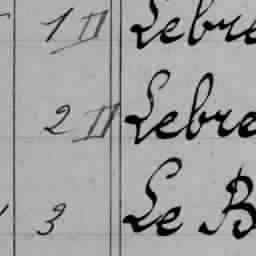 1 II Lebre
2 II Lebre
3 Le B